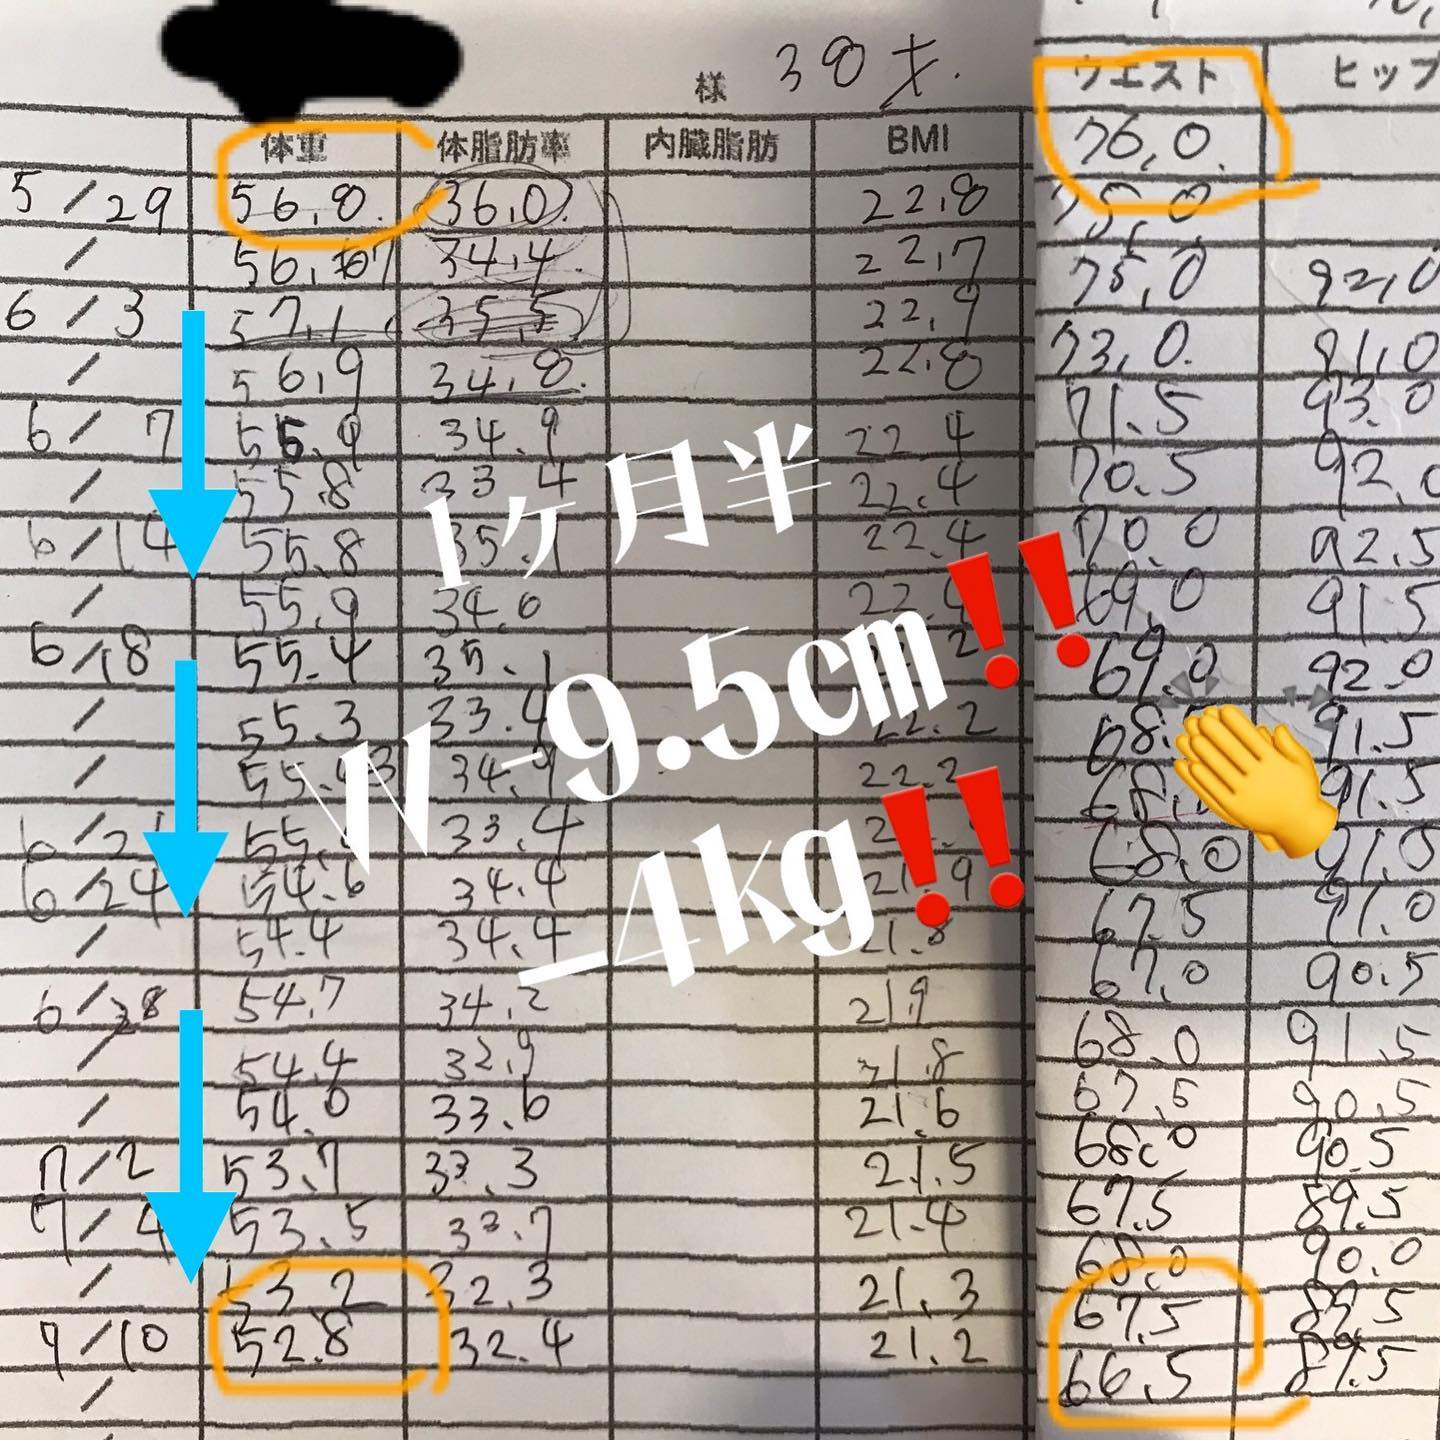 様 38才.
体重 体脂肪率 内臓脂肪 BMI ウエスト ヒップ
76,0.
5/29 56,8. 36,0. 22,8 75,0
/ 34,4. 22,7 75,0 92,0
6/3 57,1 35,5 22,9 73,0. 91,0
/ 56,9 34,8. 22,8 71.5 93.0
6/7 55.9 34.9 22.4 70.5 92.0
/ 55.8 33.4 22.4 70.0 92.5
6/14 55.8 35.1 22.4 69.0 91.5
/ 55.9 34.0 69.0 92.0
6/18 55.4 35.1 91.5
/ 55.3 33.4 22.2 91.5
/ 34.9 68.0 91.0
33.4 67.5 91.0
6/24 54.6 34.4 21.9 67.0 90.5
/ 54.4 34.4 21.8
6/28 54.7 34.2 21.9 68.0 91.5
/ 54.4 32.9 21.8 67.5 90.5
/ 54.0 33.6 21.6 68.0 90.5
7/2 53.7 33.3 21.5 67.5 89.5
7/4 53.5 33.7 21.4 68.0 90.0
/ 53.2 32.3 21.3 67.5 89.5
7/10 52.8 32.4 21.2 66.5 89.5
/
1ヶ月半
W -9.5㎝‼️
-4kg‼️